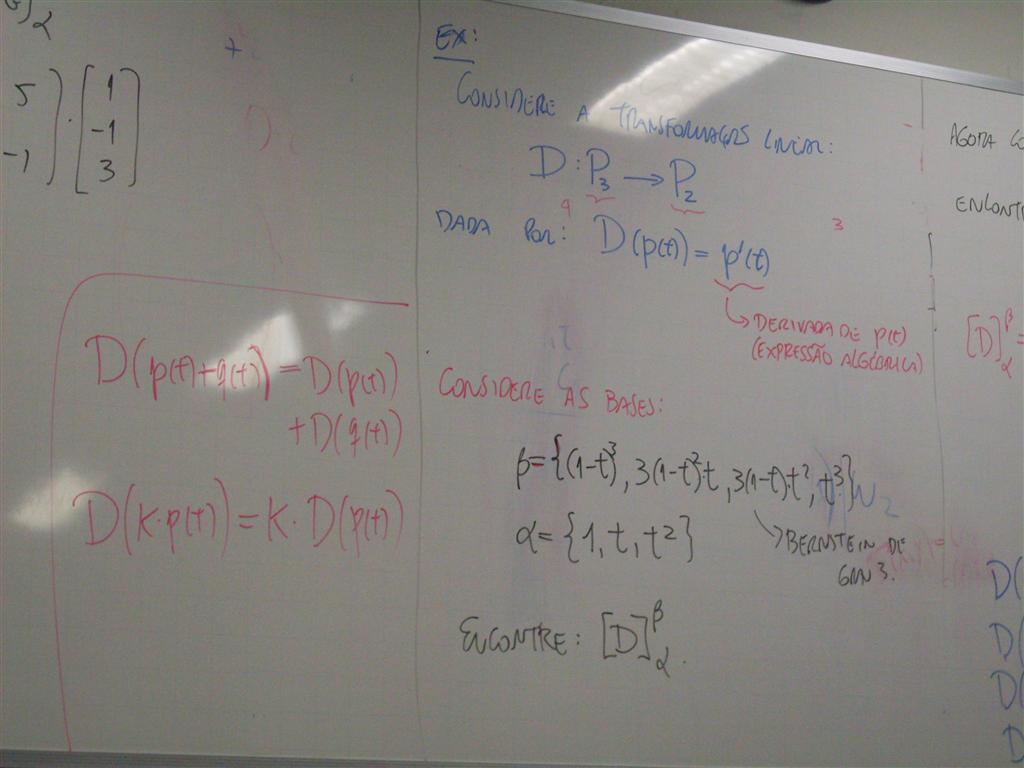 )α
5
-1
) · [1
-1
3]
+
D(p(t)+q(t)) = D(p(t))
+ D(q(t))
D(K·p(t)) = K·D(p(t))
EX:
CONSIDERE A TRANSFORMAÇÃO LINEAR:
D: P₃ → P₂
4
3
DADA POR: D(p(t)) = p'(t)
↳ DERIVADA DE p(t)
(EXPRESSÃO ALGÉBRICA)
CONSIDERE AS BASES:
β = {(1-t)³, 3(1-t)²t, 3(1-t)t², t³}
α = {1, t, t²}
↘ BERNSTEIN DE
GRAU 3.
ENCONTRE: [D]βα.
AGORA CO
ENCONTR
[D]βα =
D(
D(
D(
D